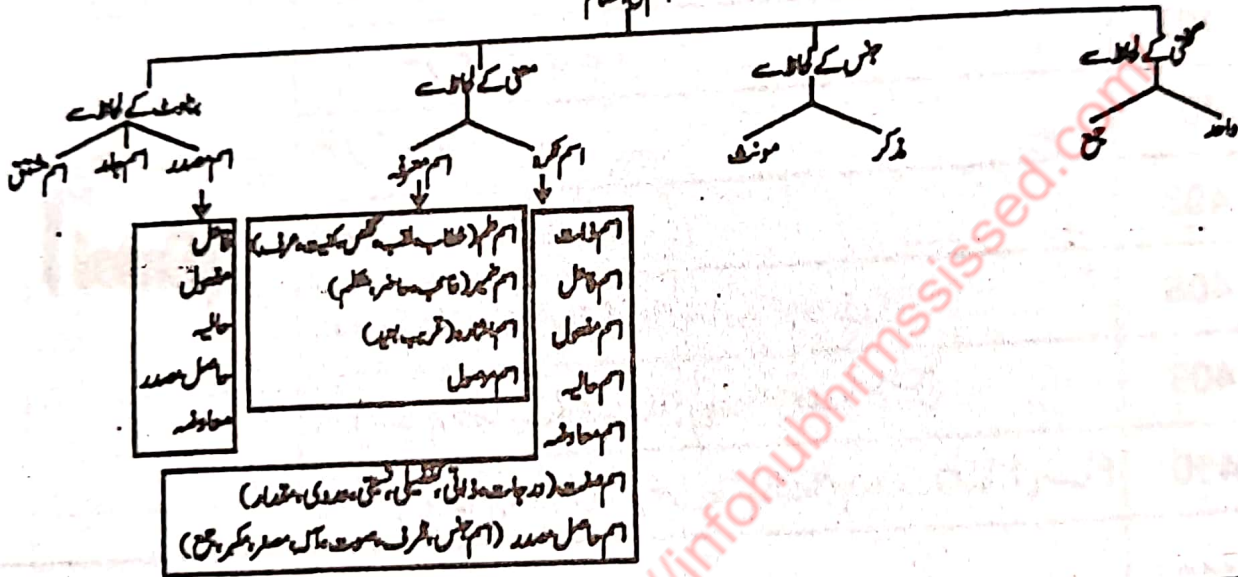 گنتی کے لحاظ سے
جنس کے لحاظ سے
معنی کے لحاظ سے
بناوٹ کے لحاظ سے
واحد
جمع
مذکر
مونث
اسم نکرہ
اسم معرفہ
اسم مصدر
اسم جامد
اسم مشتق
اسم ذات
اسم فاعل
اسم مفعول
اسم حالیہ
اسم معاوضہ
اسم صفت (درجات، ذاتی، تفضیلی، نسبتی، عددی، مقدار)
اسم حاصل مصدر (اسم جنس، ظرف، صوت، آلہ، مصغر، مکبر، جمع)
اسم علم (خطاب، لقب، تخلص، کنیت، عرف)
اسم ضمیر (غائب، حاضر، متکلم)
اسم اشارہ (قریب، بعید)
اسم موصول
فاعل
مفعول
حالیہ
حاصل مصدر
معاوضہ
//infohubhrmssissed.com/